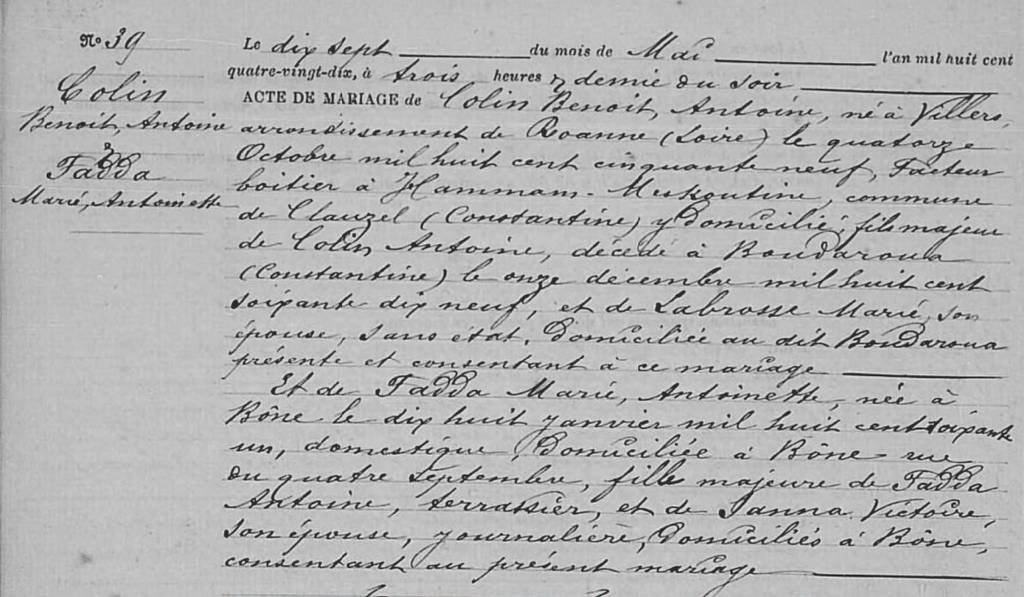 No 39
Colin
Benoit, Antoine
&
Fadda
Marie, Antoinette
Le dix sept du mois de Mai l'an mil huit cent
quatre-vingt-dix, à trois heures & demie du soir
ACTE DE MARIAGE de Colin Benoit, Antoine, né à Villers,
arrondissement de Roanne (Loire) le quatorze
Octobre mil huit cent cinquante neuf, Facteur
boitier à Hammam-Meskoutine, commune
de Clauzel (Constantine) y domicilié; fils majeur
de Colin Antoine, décédé à Boudaroua
(Constantine) le onze décembre mil huit cent
soixante dix neuf, et de Labrosse Marie, son
épouse, sans état, domiciliée au dit Boudaroua
présente et consentant à ce mariage
Et de Fadda Marie, Antoinette, née à
Bône le dix huit janvier mil huit cent soixante
un, domestique, domiciliée à Bône rue
du quatre Septembre, fille majeure de Fadda
Antoine, terrassier, et de Sanna Victoire,
son épouse, journalière, domiciliés à Bône,
consentant au présent mariage